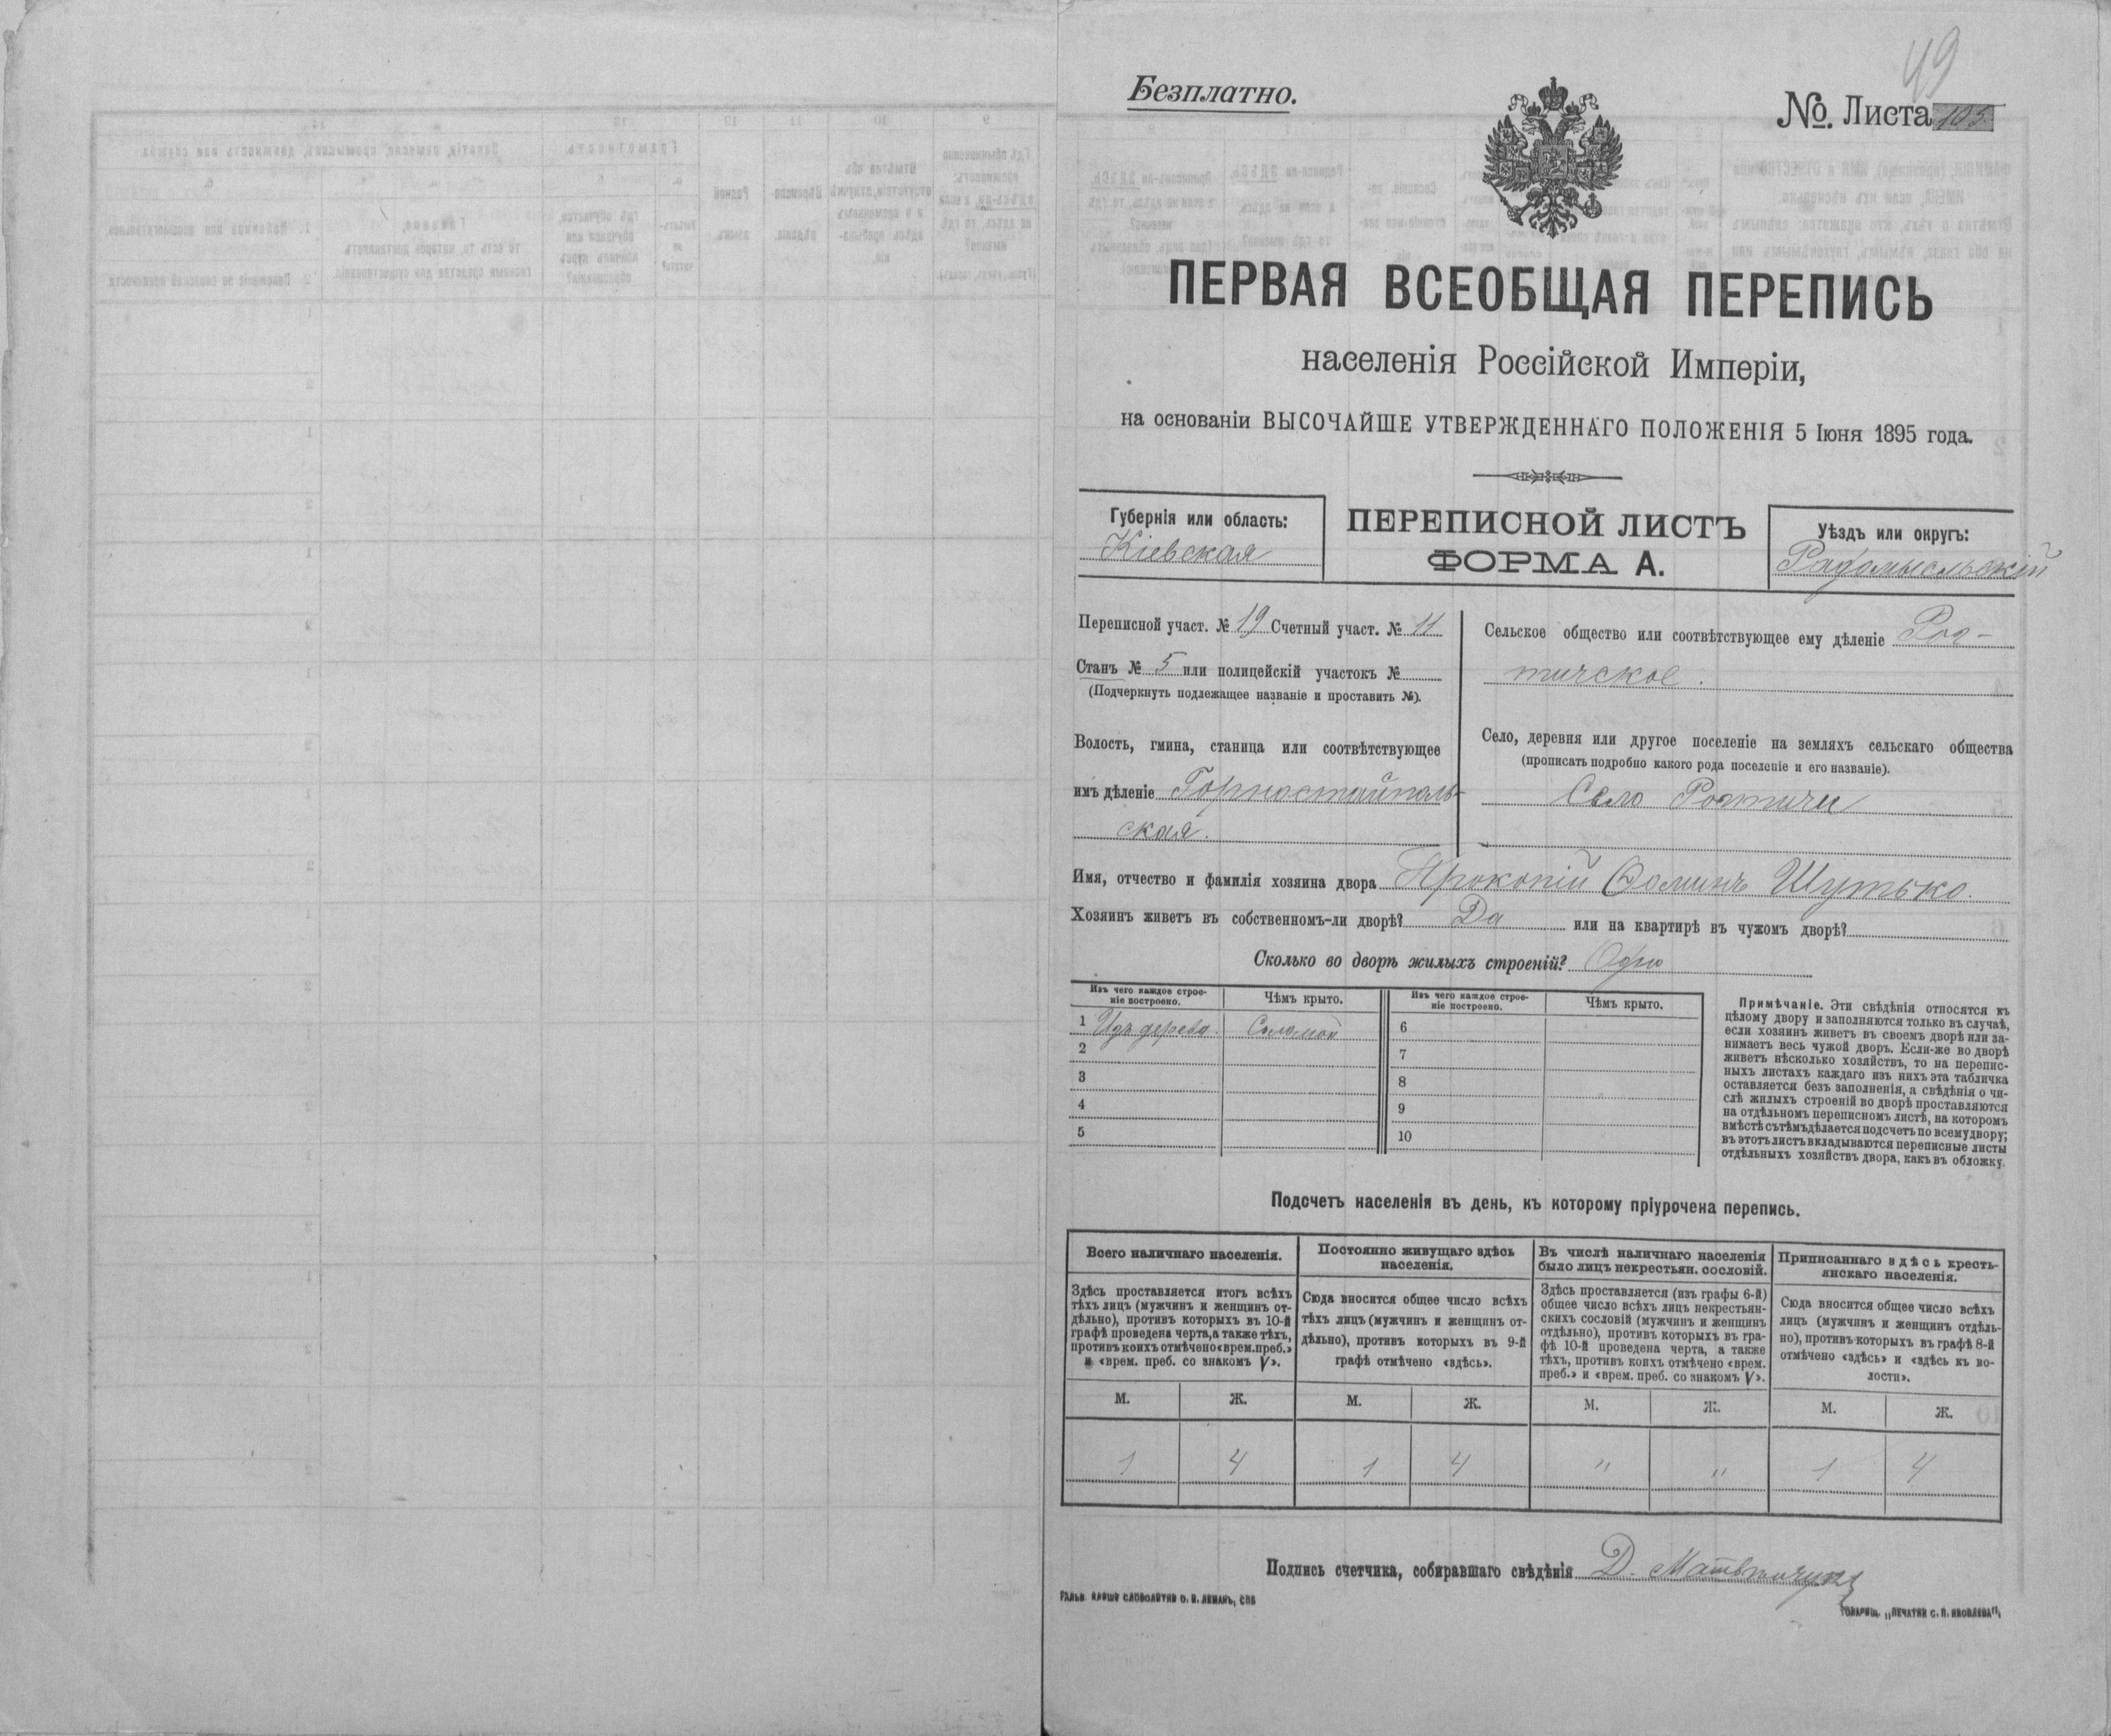 49
Безплатно.
№. Листа 105
ПЕРВАЯ ВСЕОБЩАЯ ПЕРЕПИСЬ
населенія Россійской Имперіи,
на основаніи ВЫСОЧАЙШЕ УТВЕРЖДЕННАГО ПОЛОЖЕНІЯ 5 Іюня 1895 года.
Губернія или область:
Кіевская
ПЕРЕПИСНОЙ ЛИСТЪ
ФОРМА А.
Уѣздъ или округъ:
Радомысльскій
Переписной участ. № 19 Счетный участ. № 11
Станъ № 5 или полицейскій участокъ №
(Подчеркнуть подлежащее названіе и проставить №).
Волость, гмина, станица или соотвѣтствующее
имъ дѣленіе Горностайполь-
ская.
Сельское общество или соотвѣтствующее ему дѣленіе
Село, деревня или другое поселеніе на земляхъ сельскаго общества
(прописать подробно какого рода поселеніе и его названіе).
Село
Имя, отчество и фамилія хозяина двора Прокопій Ѳоминъ Шутько.
Хозяинъ живетъ въ собственномъ-ли дворѣ? Да или на квартирѣ въ чужомъ дворѣ?
Сколько во дворѣ жилыхъ строеній? Одно
Изъ чего каждое строе-
ніе построено.
Чѣмъ крыто.
Изъ чего каждое строе-
ніе построено.
Чѣмъ крыто.
1 Изъ дерева. Соломой 6
2 7
3 8
4 9
5 10
Примѣчаніе. Эти свѣдѣнія относятся къ
цѣлому двору и заполняются только въ случаѣ,
если хозяинъ живетъ въ своемъ дворѣ или за-
нимаетъ весь чужой дворъ. Если-же во дворѣ
живетъ нѣсколько хозяйствъ, то на перепис-
ныхъ листахъ каждаго изъ нихъ эта табличка
оставляется безъ заполненія, а свѣдѣнія о чи-
слѣ жилыхъ строеній во дворѣ проставляются
на отдѣльномъ переписномъ листѣ, на которомъ
вмѣстѣ съ тѣмъ дѣлается подсчетъ по всему двору;
въ этотъ листъ вкладываются переписные листы
отдѣльныхъ хозяйствъ двора, какъ въ обложку.
Подсчетъ населенія въ день, къ которому пріурочена перепись.
Всего наличнаго населенія.
Здѣсь проставляется итогъ всѣхъ
тѣхъ лицъ (мужчинъ и женщинъ от-
дѣльно), противъ которыхъ въ 10-й
графѣ проведена черта, а также тѣхъ,
противъ коихъ отмѣчено «врем. преб.»
и «врем. преб. со знакомъ V».
Постоянно живущаго здѣсь
населенія.
Сюда вносится общее число всѣхъ
тѣхъ лицъ (мужчинъ и женщинъ от-
дѣльно), противъ которыхъ въ 9-й
графѣ отмѣчено «здѣсь».
Въ числѣ наличнаго населенія
было лицъ некрестьян. сословій.
Здѣсь проставляется (изъ графы 6-й)
общее число всѣхъ лицъ некрестьян-
скихъ сословій (мужчинъ и женщинъ
отдѣльно), противъ которыхъ въ гра-
фѣ 10-й проведена черта, а также
тѣхъ, противъ коихъ отмѣчено «врем.
преб.» и «врем. преб. со знакомъ V».
Приписаннаго здѣсь кресть-
янскаго населенія.
Сюда вносится общее число всѣхъ
лицъ (мужчинъ и женщинъ отдѣль-
но), противъ которыхъ въ графѣ 8-й
отмѣчено «здѣсь» и «здѣсь къ во-
лости».
М. Ж. М. Ж. М. Ж. М. Ж.
1 4 1 4 " " 1 4
Подпись счетчика, собиравшаго свѣдѣнія Д.
ГАЛЬВ. КЛИШЕ СЛОВОЛИТНИ О. И. ЛЕМАНЪ, СПБ
ТОВАРИЩ. „ПЕЧАТНИ С. П. ЯКОВЛЕВА".